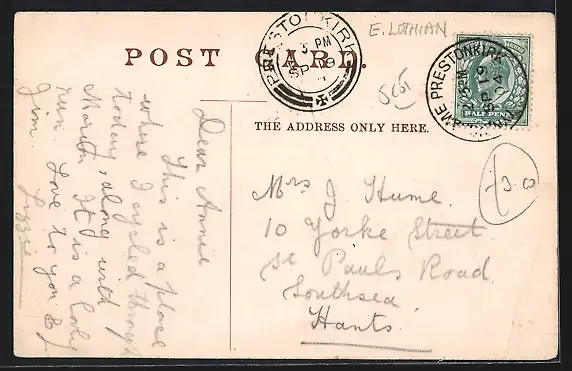 E. LOTHIAN
POST CARD.
PRESTONKIRK
5 PM
SP 19
PRESTONKIRK
SP 19
04
HALF PENNY
THE ADDRESS ONLY HERE.
Dear Annie
This is a place
where I cycled through
today, along with
Martin. It is a lovely
run. Love to you &
Jim. Lizzie
Mrs J. Hume.
10 Yorke Street
St Pauls Road.
Southsea
Hants.